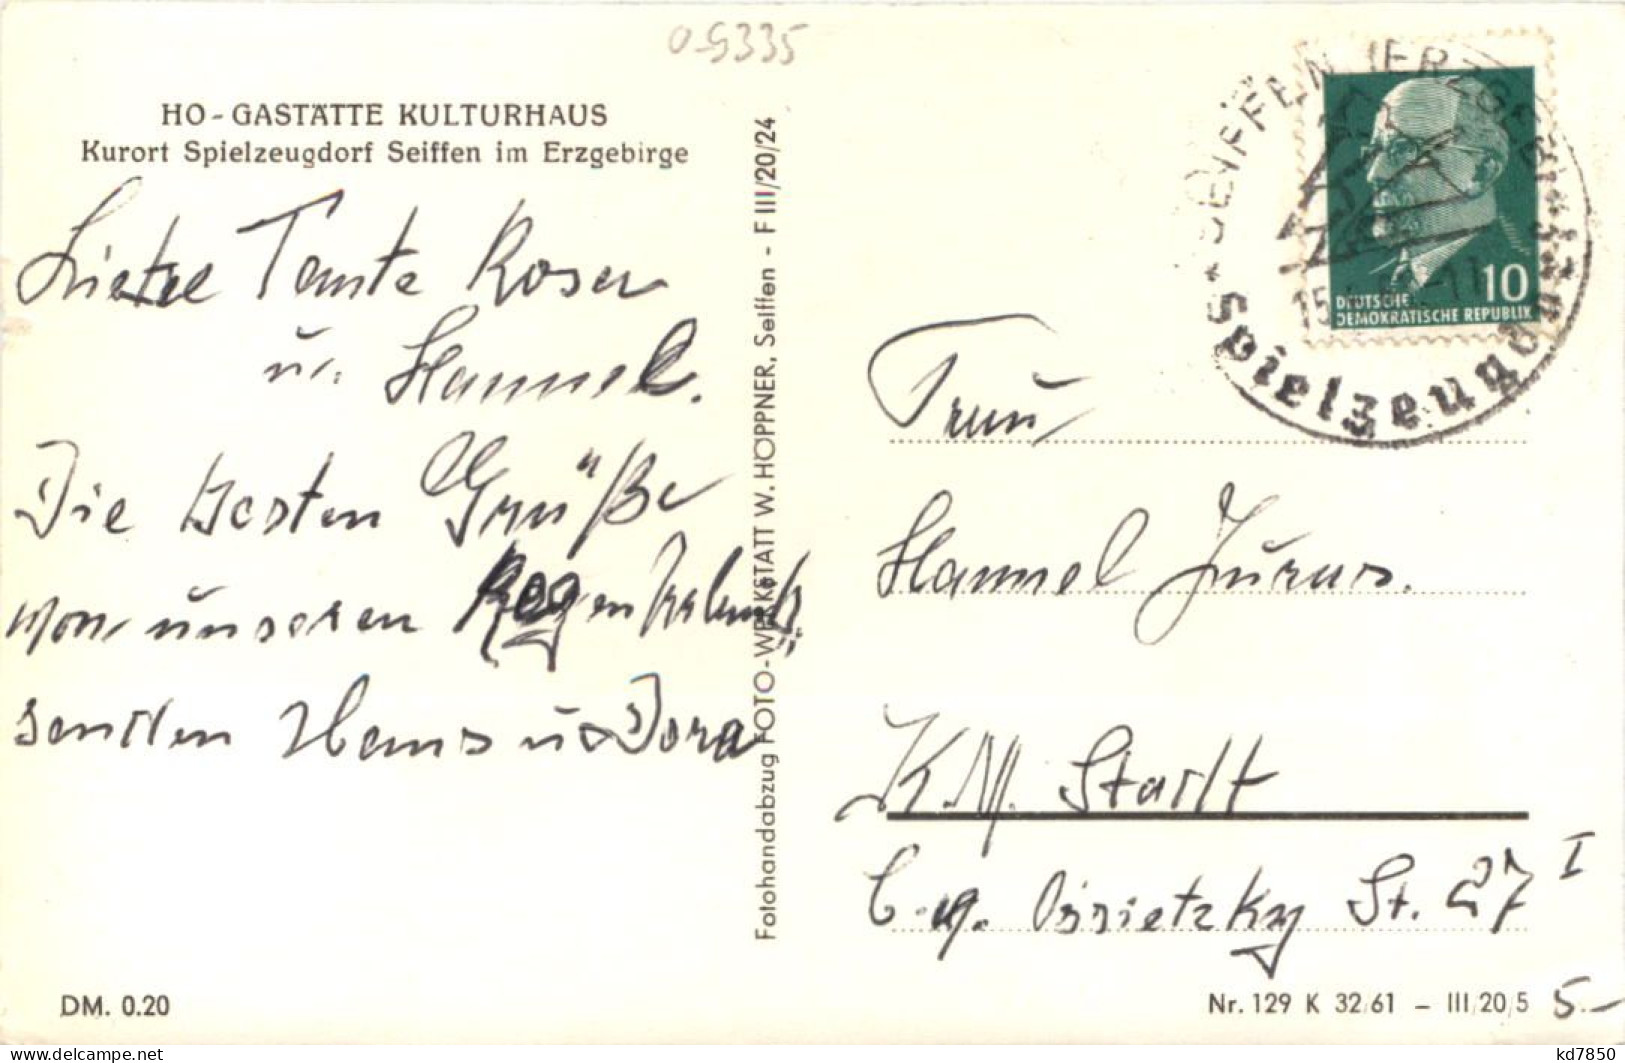 O-9335
HO-GASTÄTTE KULTURHAUS
Kurort Spielzeugdorf Seiffen im Erzgebirge
Liebe Tante Rosen
u. Hannel.
Die besten Grüße
von unseren Regen
senden Hans u Dora
DM. 0.20
Fotohandabzug FOTO-WERKSTATT W. HÖPPNER, Seiffen - F III/20/24
SEIFFEN (ERZGEB
Spielzeugdorf
15
-11
10
DEUTSCHE
DEMOKRATISCHE REPUBLIK
Frau
Hannel
K.M. Stadt
C.v. Ossietzky St. 27 I
Nr. 129 K 32/61 – III/20/5
5.–
kd7850